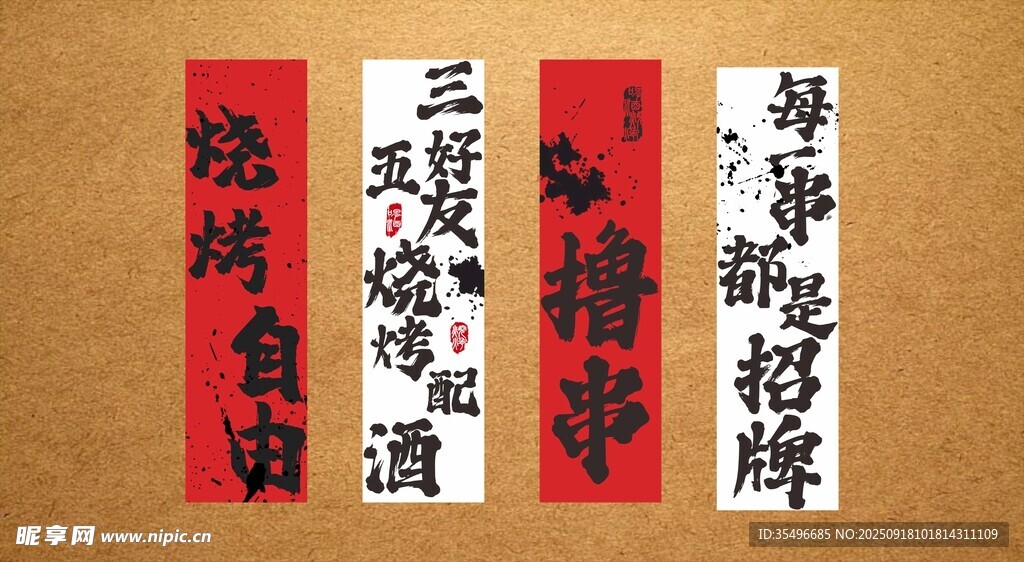 烧烤自由
三五好友
烧烤配酒
撸串
每一串都是招牌
昵享网 www.nipic.cn
ID:35496685 NO:20250918101814311109